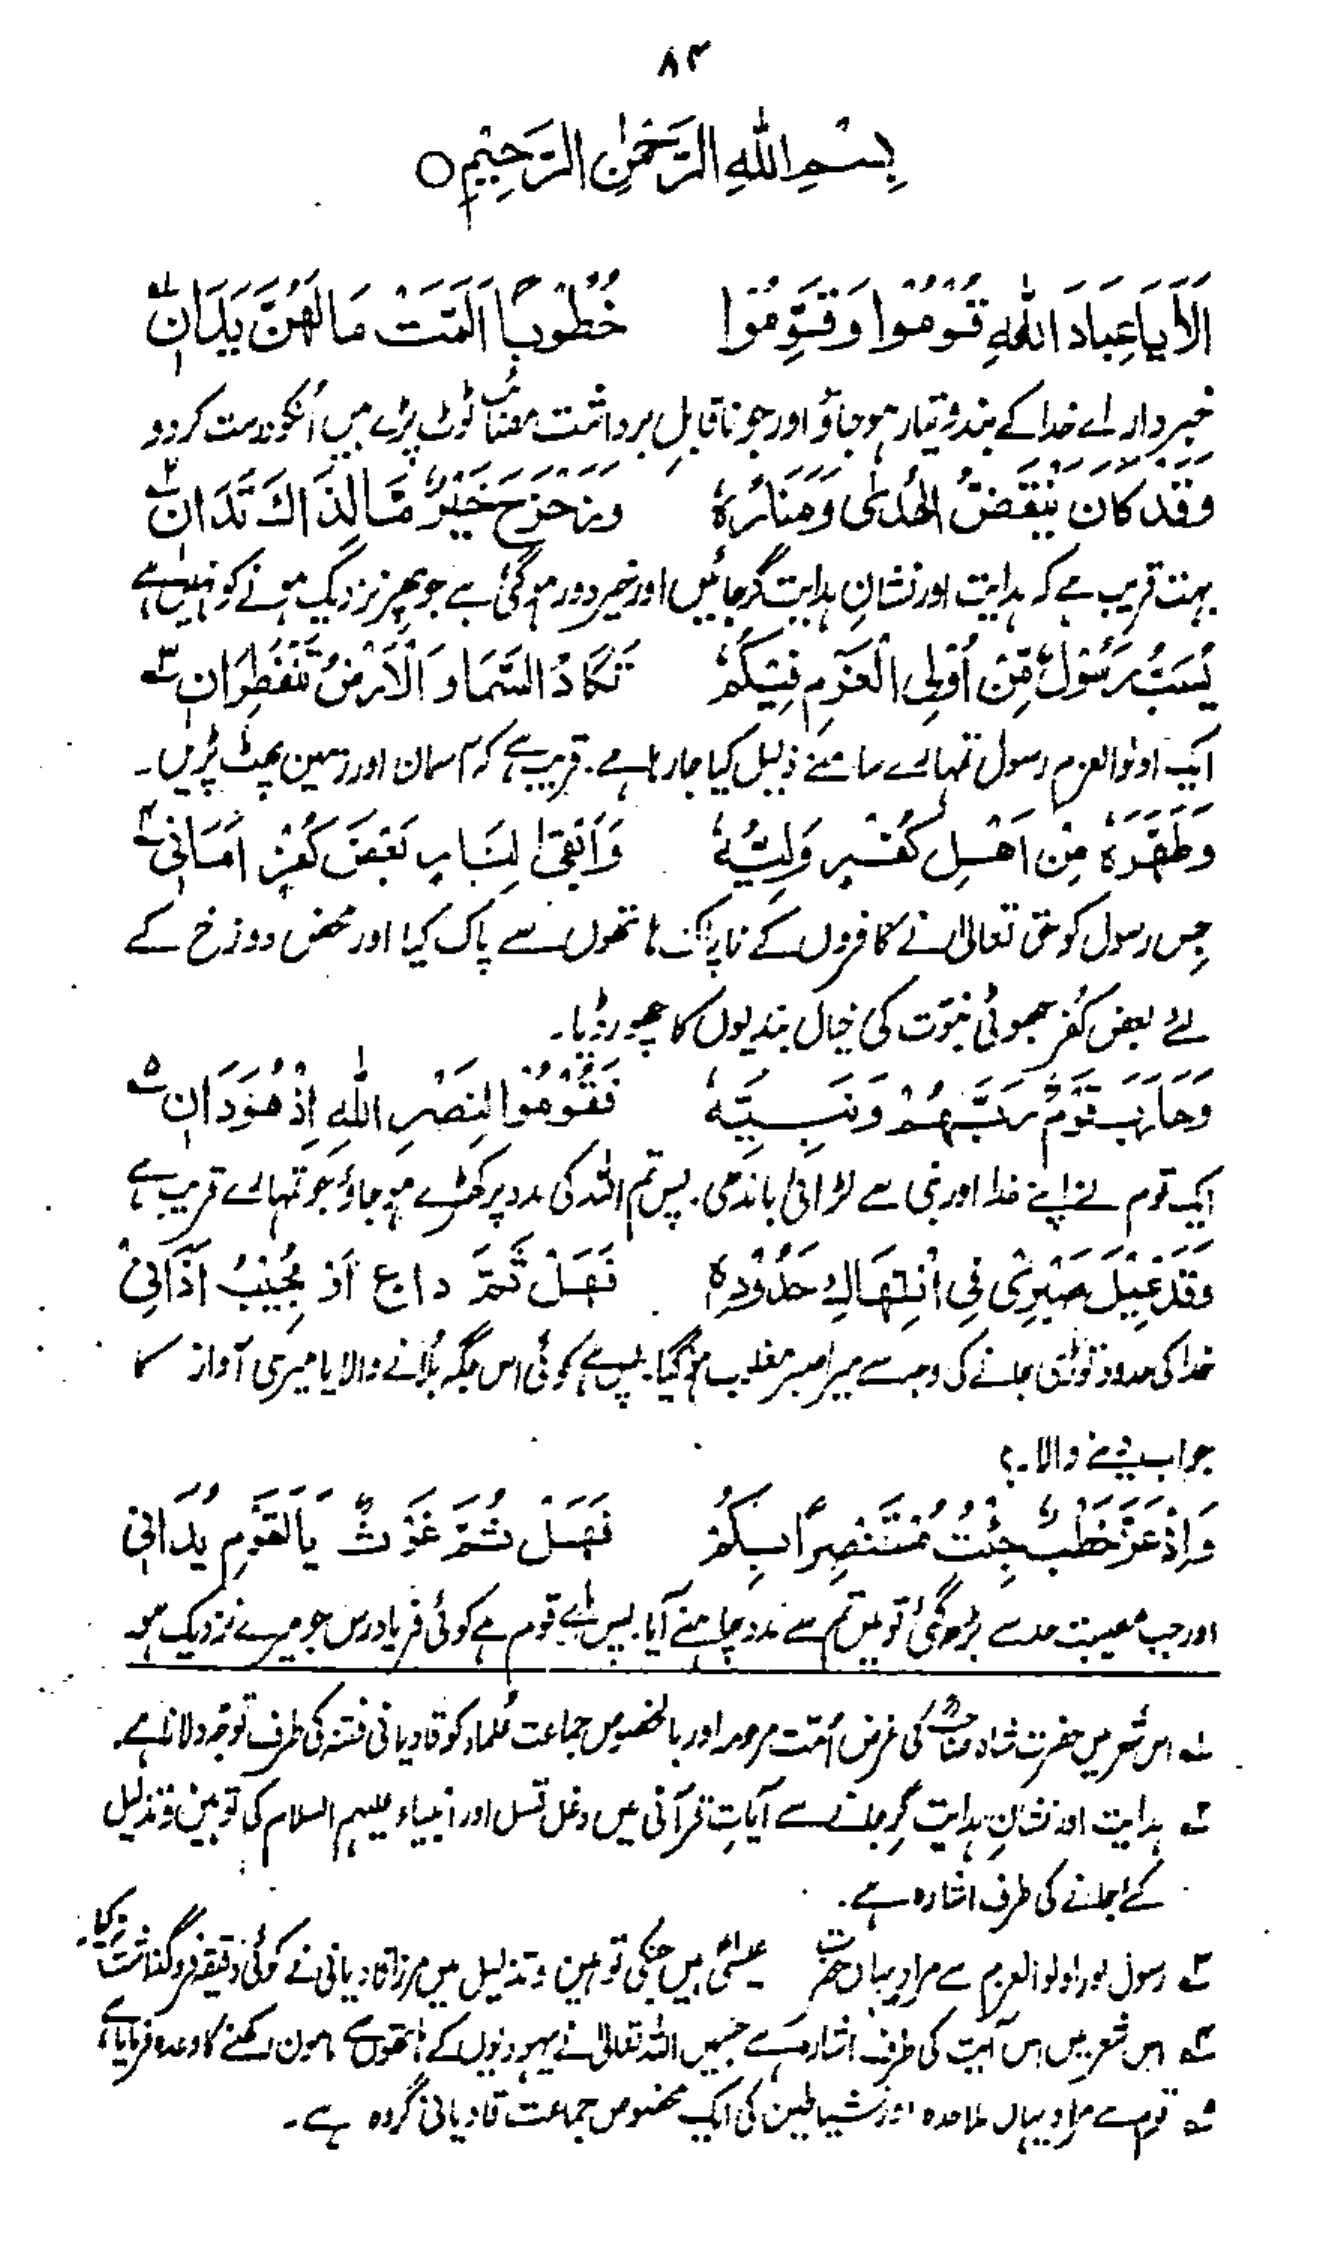 ۸۴
بِسْمِ اللّٰهِ الرَّحْمٰنِ الرَّحِیْمِ ○
اَلَا یَا عِبَادَ اللّٰهِ قُوْمُوْا وَقَوِّمُوْا خُطُوْبًا اَلَمَّتْ مَا لَهُنَّ یَدَانِ ۱؎
خبردار اے خدا کے بندو تیار ہو جاؤ اور جو ناقابلِ برداشت مصائب ٹوٹ پڑے ہیں اُنکو درست کر دو
وَقَدْ کَانَ یَنْقَضُّ الْهُدٰی وَمَنَارُهٗ وَزَحْزَحَ خَیْرٌ مَّا لِذَاكَ تَدَانِ ۲؎
بہت قریب ہے کہ ہدایت اور نشانِ ہدایت گر جائیں اور خیر دور ہوگئی ہے جو پھر نزدیک ہونے کو نہیں ہے
یُسَبُّ رَسُوْلٌ مِّنْ اُولِی الْعَزْمِ فِیْکُمْ تَکَادُ السَّمَا وَالْاَرْضُ تَنْفَطِرَانِ ۳؎
ایک اولوالعزم رسول تمہارے سامنے ذلیل کیا جا رہا ہے۔ قریب ہے کہ آسمان اور زمین پھٹ پڑیں۔
وَطَهَّرَهٗ مِنْ اَهْلِ کُفْرٍ وَلِیُّهٗ وَاَبْقٰی لِنَارٍ بَعْضَ کُفْرِ اَمَانِیْ ۴؎
جس رسول کو حق تعالیٰ نے کافروں کے ناپاک ہاتھوں سے پاک کیا اور محض دوزخ کے
لئے بعض کفر جھوٹی نبوّت کی خیال بندیوں کا چھوڑ دیا۔
وَحَارَبَ قَوْمٌ رَبَّهُمْ وَنَبِیَّهٗ فَقُوْمُوْا لِنَصْرِ اللّٰهِ اِذْ هُوَ دَانِ ۵؎
ایک قوم نے اپنے خدا اور نبی سے لڑائی باندھی۔ پس تم اللہ کی مدد پر کھڑے ہو جاؤ جو تمہارے قریب ہے
وَقَدْ عِیْلَ صَبْرِیْ فِی انْتِهَاكِ حُدُوْدِهٖ فَهَلْ ثَمَّ دَاعٍ اَوْ مُجِیْبُ اَذَانِیْ
خدا کی حدود توڑی جانے کی وجہ سے میرا صبر مغلوب ہو گیا۔ پس ہے کوئی اس جگہ بلانے والا یا میری آواز کا
جواب دینے والا۔؟
وَاِذْ عَزَّ خَطْبٌ جِئْتُ مُسْتَنْصِرًا بِکُمْ فَهَلْ ثَمَّ غَوْثٌ یَا لَقَوْمِ یُدَانِیْ
اور جب مصیبت حد سے بڑھ گئی تو میں تم سے مدد چاہنے آیا۔ پس اے قوم ہے کوئی فریادرس جو میرے نزدیک ہو۔
۱؎ اس شعر میں حضرت شاہ صاحبؒ کی غرض اُمّت مرحومہ اور بالخصوص جماعت علماء کو قادیانی فتنہ کی طرف توجہ دلانا ہے۔
۲؎ ہدایت اور نشانِ ہدایت گر جانے سے آیاتِ قرآنی میں دغل فصل اور انبیاء علیہم السلام کی توہین و تذلیل
کئے جانے کی طرف اشارہ ہے۔
۳؎ رسول اور اولوالعزم سے مراد یہاں حضرت عیسیٰؑ ہیں جنکی توہین و تذلیل میں مرزا قادیانی نے کوئی دقیقہ فروگذاشت نہ کیا۔
۴؎ اس شعر میں اس آیت کی طرف اشارہ ہے جسمیں اللہ تعالیٰ نے یہودیوں کے ہاتھوں سے مامون رکھنے کا وعدہ فرمایا ہے،
۵؎ قوم سے مراد یہاں ملاحدہ اور شیاطین کی ایک مخصوص جماعت قادیانی گروہ ہے۔